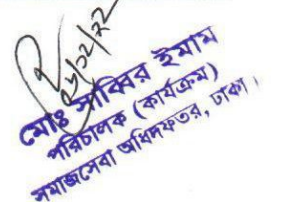 ২৮/১২/২২
মোঃ সাব্বির ইমাম
পরিচালক (কার্যক্রম)
সমাজসেবা অধিদফতর, ঢাকা।